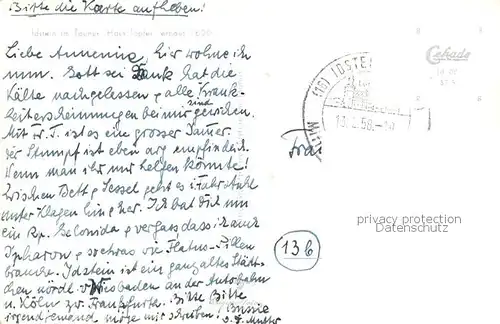 Bitte die Karte aufheben!
Idstein im Taunus, Haus erbaut 1620
Liebe Annemie, hier wohne ich
nun. Gott sei Dank hat die
Kälte nachgelassen & alle Krank-
heitserscheinungen bei mir sind gewichen.
Mit Fr. T. ist es ein grosser Jammer.
der Stumpf ist eben arg empfindlich.
Wenn man ihr nur helfen könnte!
Zwischen Bett & Sessel geht es i. Fahrstuhl
unter Klagen hin & her. Ich bat Dich um
ein Rp. & vergass dass ich auch
& so etwas wie Flatus-Pillen
brauche. Idstein ist ein ganz altes Städt-
chen nördl. v. Wiesbaden an der Autobahn
v. Köln zu Frankfurth. Bitte Bitte
irgendjemand möge mir schreiben!
(16) IDSTEIN
13.2.56.-10
Cekade
Frau
13b
privacy protection
Datenschutz